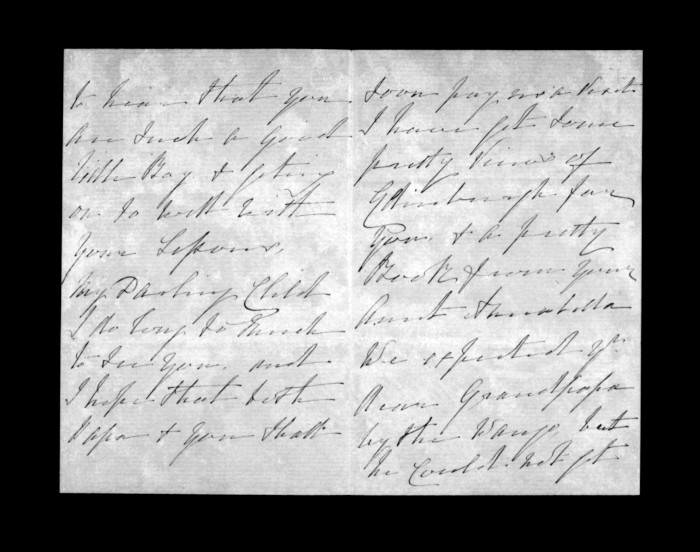 to hear that you
are such a good
little Boy & geting
on so well with
your Lessons,
My Darling Child
I do long so much
to see you, and
I hope that both
Papa & you shall
soon pay us a visit
I have got some
pretty Views of
Edinburgh for
you & a pretty
Book from your
Aunt Annabella
We expected yr
dear Grandpapa
by the Wanga but
he could not get